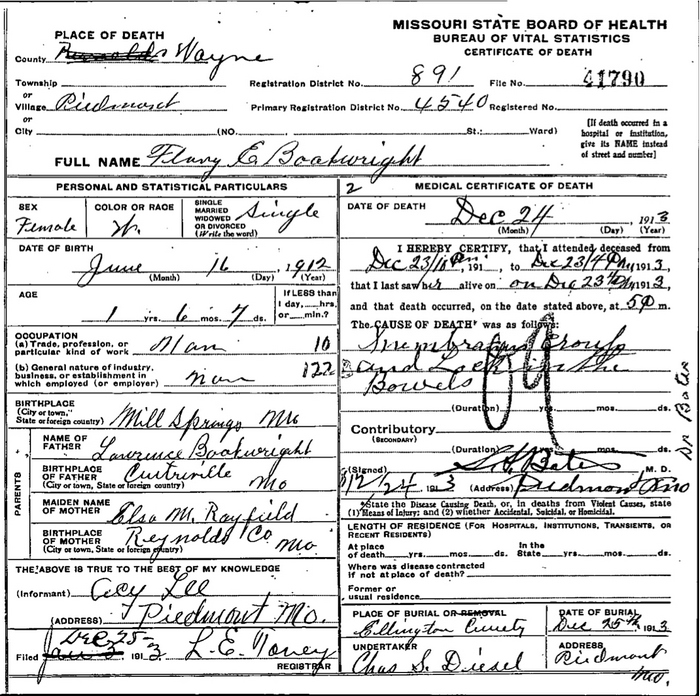 MISSOURI STATE BOARD OF HEALTH
BUREAU OF VITAL STATISTICS
CERTIFICATE OF DEATH
PLACE OF DEATH
County Reynolds Wayne
Township
or
Village Piedmont
or
City (NO. St.; Ward)
Registration District No. 891 File No. 41790
Primary Registration District No. 4540 Registered No.
[If death occurred in a
hospital or institution,
give its NAME instead
of street and number]
FULL NAME Flavy E Boatwright
PERSONAL AND STATISTICAL PARTICULARS
SEX
Female
COLOR OR RACE
W.
SINGLE
MARRIED
WIDOWED
OR DIVORCED
(Write the word)
Single
DATE OF BIRTH
June 16, 1912
(Month) (Day) (Year)
AGE
1 yrs. 6 mos. 7 ds.
If LESS than
1 day,....hrs.
or....min.?
OCCUPATION
(a) Trade, profession, or
particular kind of work
10
(b) General nature of industry,
business, or establishment in
which employed (or employer)
122
BIRTHPLACE
(City or town,
State or foreign country)
Mill Springs Mo
PARENTS
NAME OF
FATHER
Lawrence Boatwright
BIRTHPLACE
OF FATHER
(City or town, State or foreign country)
Mo
MAIDEN NAME
OF MOTHER
Elsa M. Rayfield
BIRTHPLACE
OF MOTHER
(City or town, State or foreign country)
Reynolds Co Mo.
THE ABOVE IS TRUE TO THE BEST OF MY KNOWLEDGE
(Informant) Lee
(ADDRESS) Piedmont Mo.
Filed Dec 25- Jan 3 1913 L. E. Toney
REGISTRAR
2
MEDICAL CERTIFICATE OF DEATH
DATE OF DEATH
Dec 24, 1913
(Month) (Day) (Year)
I HEREBY CERTIFY, that I attended deceased from
Dec 23/10 191 , to Dec 23/4 P 1913,
that I last saw her alive on Dec 23 1913,
and that death occurred, on the date stated above, at 5 P m.
The CAUSE OF DEATH* was as follows:
Membranous Croup
and the
Bowels
09
(Duration) yrs. mos. ds.
Contributory
(SECONDARY)
(Duration) yrs. mos. ds.
(Signed) Bates M. D.
12/24 1913 (Address) Piedmont Mo
Dr Bates
*State the Disease Causing Death, or, in deaths from Violent Causes, state
(1) Means of Injury; and (2) whether Accidental, Suicidal, or Homicidal.
LENGTH OF RESIDENCE (FOR HOSPITALS, INSTITUTIONS, TRANSIENTS, OR
RECENT RESIDENTS)
At place
of death yrs. mos. ds.
In the
State yrs. mos. ds.
Where was disease contracted
if not at place of death?
Former or
usual residence
PLACE OF BURIAL OR REMOVAL
Ellington
DATE OF BURIAL
Dec 25th 1913
UNDERTAKER
Chas S. Diesel
ADDRESS
Piedmont
Mo.